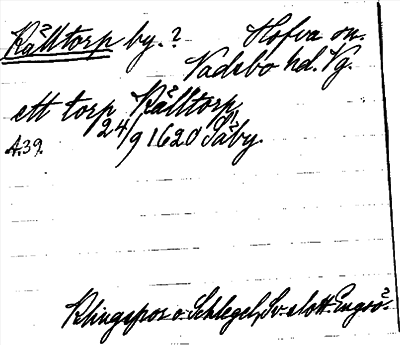 Källtorp by.? Hofva sn.
Vadsbo hd. Vg.
ett torp Källtorp
24/9 1620 Säby.
A.39.
Klingspor o. Schlegel, Sv. slott. Engsö.